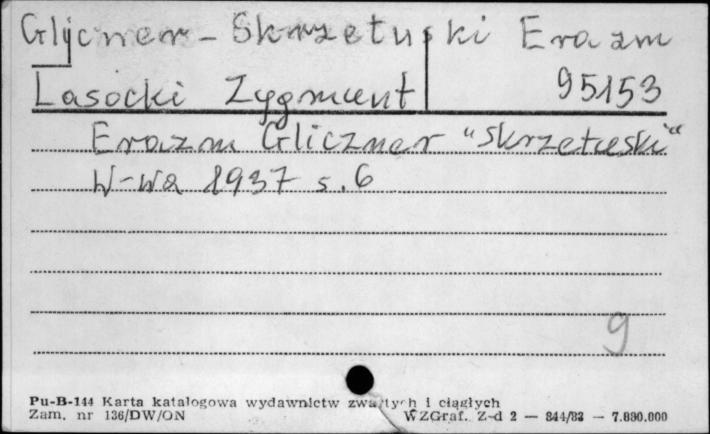 Glijcner - Skrzetuski Erazm
Lasocki Zygmunt 95153
Erazm Gliczner "Skrzetuski"
W-wa 1937 s. 6
9
Pu-B-144 Karta katalogowa wydawnictw zwartych i ciągłych
Zam. nr 136/DW/ON WZGraf. Z-d 2 — 844/83 — 7.890.000